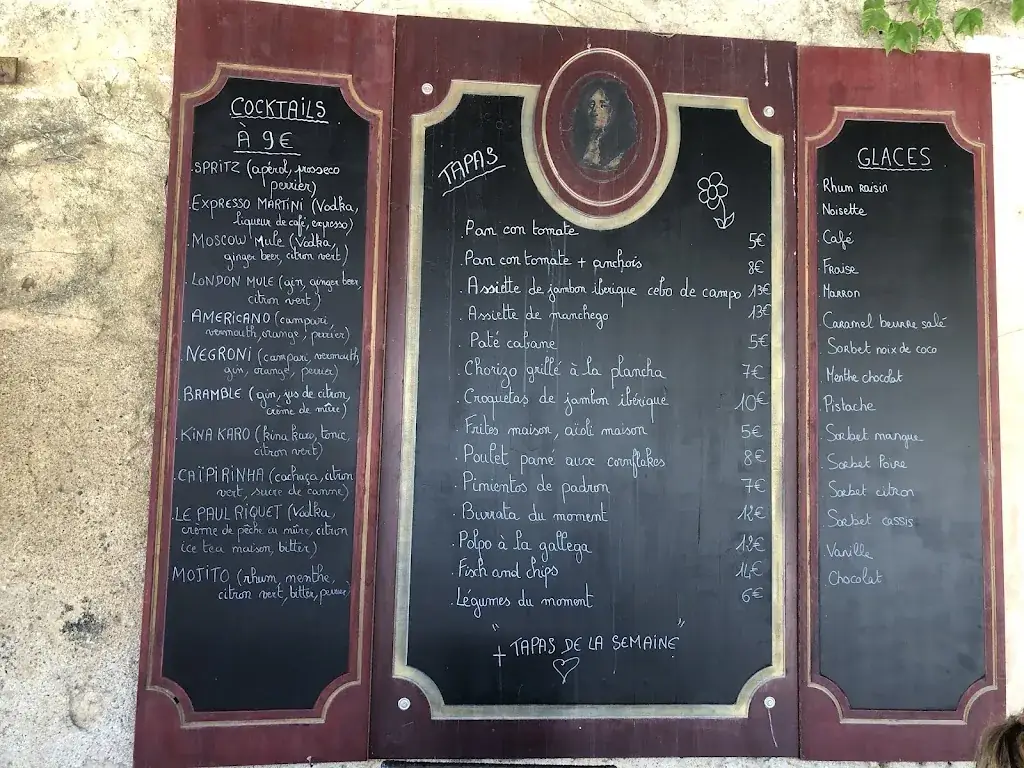 COCKTAILS
À 9€
. SPRITZ (apérol, prosseco
perrier)
. EXPRESSO MARTINI (Vodka,
liqueur de café, expresso)
. MOSCOW MULE (Vodka,
ginger beer, citron vert)
. LONDON MULE (gin, ginger beer,
citron vert)
. AMERICANO (campari,
vermouth, orange, perrier)
. NEGRONI (campari, vermouth
gin, orange, perrier)
. BRAMBLE (gin, jus de citron,
crème de mûre)
. KINA KARO (Kina Karo, tonic,
citron vert)
. CAÏPIRINHA (cachaça, citron
vert, sucre de canne)
. LE PAUL RIQUET (Vodka,
crème de pêche ou mûre, citron
ice tea maison, bitter)
MOJITO (rhum, menthe,
citron vert, bitter, perrier)
TAPAS
. Pan con tomate 5€
. Pan con tomate + anchois 8€
. Assiette de jambon iberique cebo de campo 13€
. Assiette de manchego 13€
. Paté cabane 5€
. Chorizo grillé à la plancha 7€
. Croquetas de jambon ibérique 10€
. Frites maison, aïoli maison 5€
. Poulet pané aux cornflakes 8€
. Pimientos de padron 7€
. Burrata du moment 12€
. Polpo à la gallega 12€
. Fisch and chips 14€
. Légumes du moment 6€
+ "TAPAS DE LA SEMAINE"
GLACES
. Rhum raisin
. Noisette
. Café
. Fraise
. Marron
. Caramel beurre salé
. Sorbet noix de coco
. Menthe chocolat
. Pistache
. Sorbet mangue
. Sorbet Poire
. Sorbet citron
. Sorbet cassis
. Vanille
. Chocolat